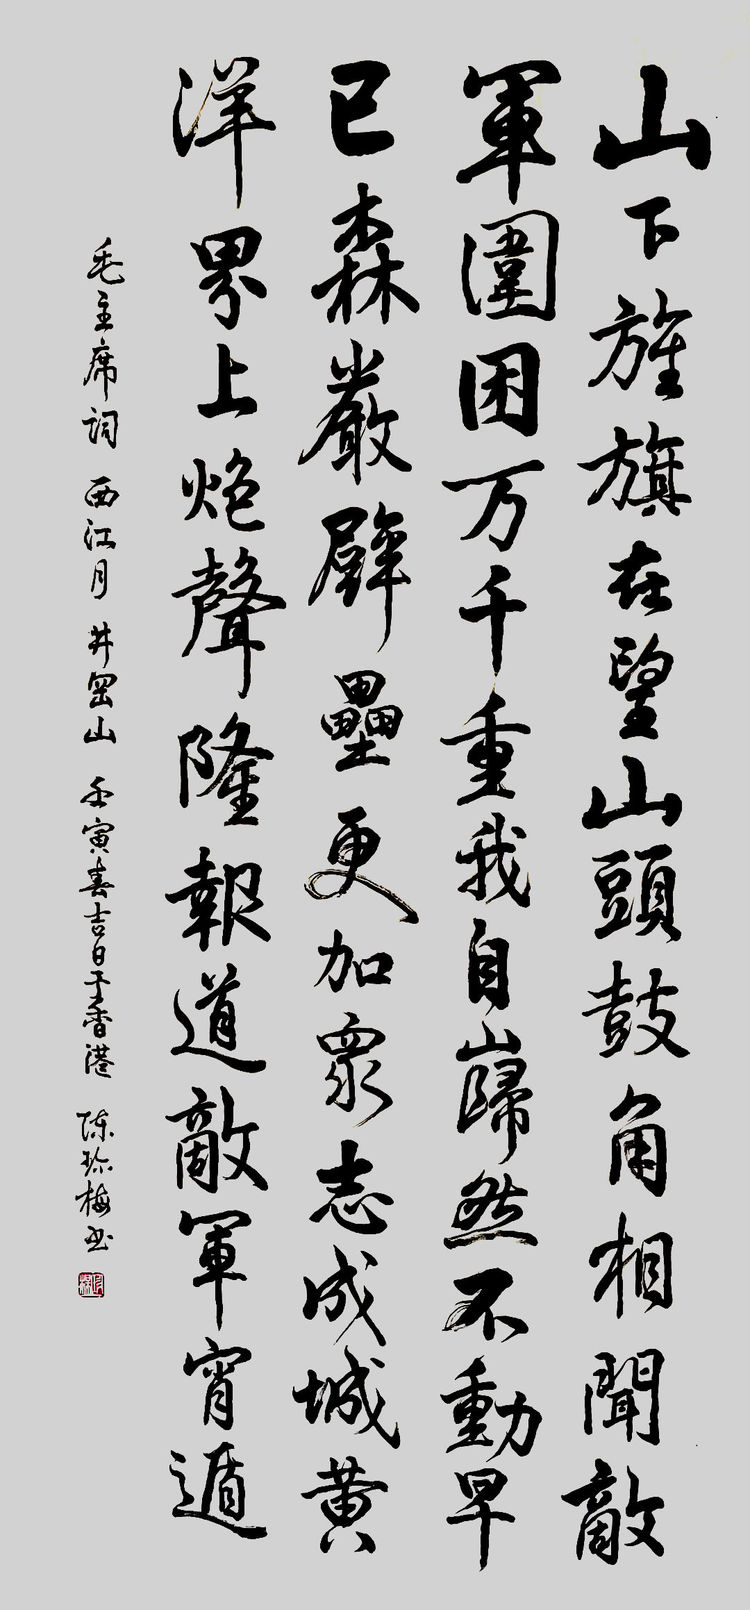 山下旌旗在望山頭鼓角相聞敵
軍圍困万千重我自巋然不動早
已森嚴壁壘更加眾志成城黄
洋界上炮聲隆報道敵軍宵遁
毛主席词 西江月 井罡山 壬寅春吉日于香港 陈珍梅书